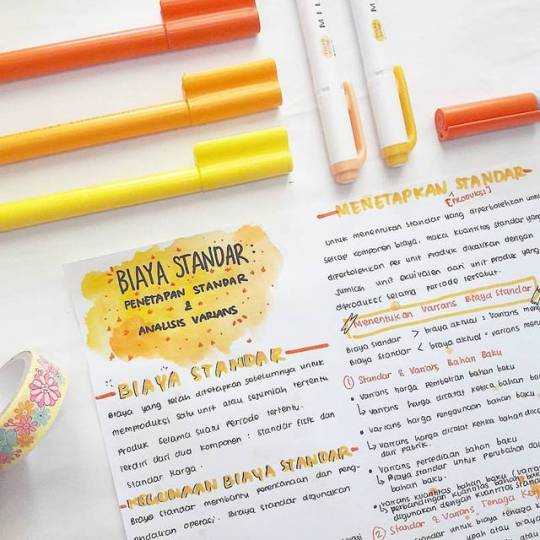 MIL
BIAYA STANDAR:
PENETAPAN STANDAR
&
ANALISIS VARIANS
BIAYA STANDAR
Biaya yang telah ditetapkan sebelumnya untuk
memproduksi satu unit atau sejumlah tertentu
produk selama suatu periode tertentu.
terdiri dari dua komponen : standar fisik dan
standar harga.
KEGUNAAN BIAYA STANDAR
Biaya standar membantu perencanaan dan peng-
endalian operasi. Biaya standar digunakan
MENETAPKAN STANDAR
[PRODUKSI]
untuk menentukan standar yang diperbolehkan
setiap komponen biaya, maka kuantitas standar yang
diperbolehkan per unit produk dikalikan dengan
jumlah unit equivalen dari unit produk yang
diproduksi selama periode tersebut.
Menentukan Varians Biaya Standar
Biaya standar > biaya aktual : varians
Biaya standar < biaya aktual = varians
① Standar & Varians Bahan Baku
• varians harga pembelian bahan baku
↳ varians harga dicatat ketika bahan
• varians harga penggunaan bahan baku.
↳ varians harga dicatat ketika bahan
dari pabrik.
• varians persediaan bahan baku
↳ Biaya standar untuk perubahan
bahan baku.
• varians kuantitas bahan baku
↳ perbandingan kuantitas bahan
digunakan dengan kuantitas
② Standar & Varians Tenaga
standar untuk biaya tenaga
upah atau biaya